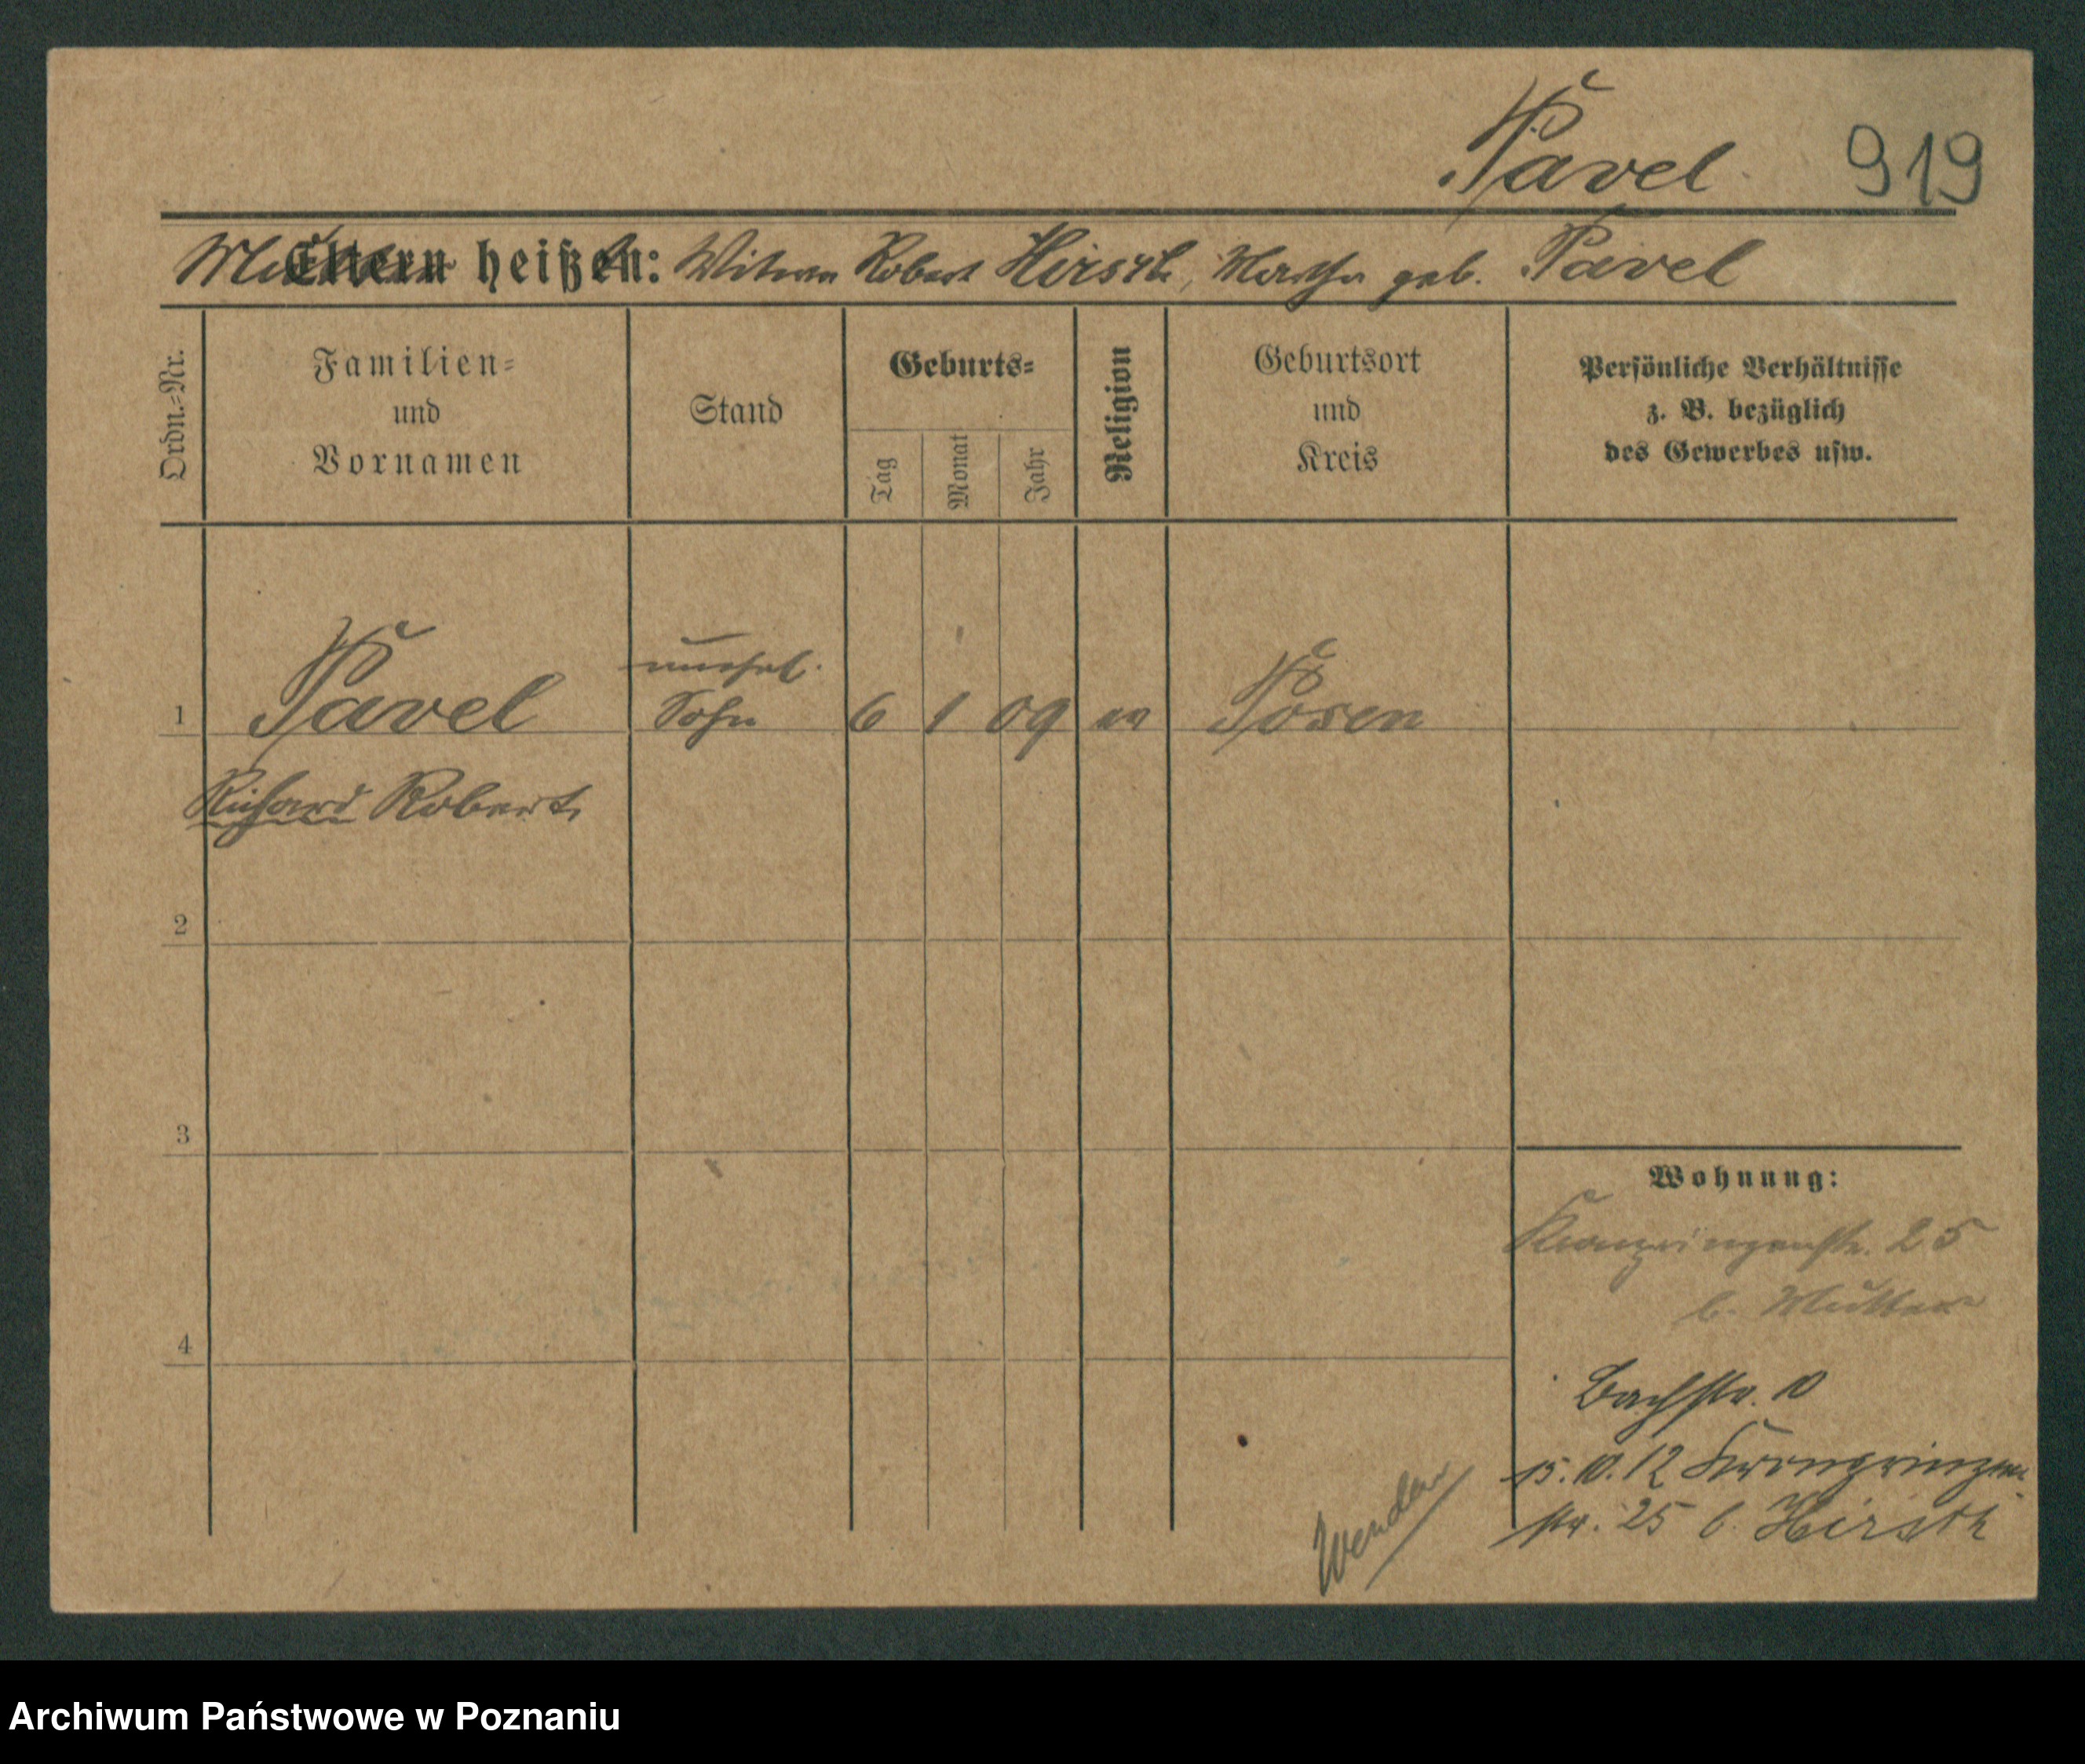 Pavel 919
Mutter heißt: Witwe Robert Hirsch, Martha geb. Pavel
Ordn.=Nr.
Familien=
und
Vornamen
Stand
Geburts=
Tag
Monat
Jahr
Religion
Geburtsort
und
Kreis
Persönliche Verhältnisse
z. B. bezüglich
des Gewerbes usw.
unehel.
1 Pavel Sohn 6 1 09 Posen
Richard Robert
2
3
4
Wohnung:
Kronprinzenstr. 25
b. Mutter
Bachstr. 10
15.10.12 Kronprinzen-
str. 25 b. Hirsch
Wenden
Archiwum Państwowe w Poznaniu